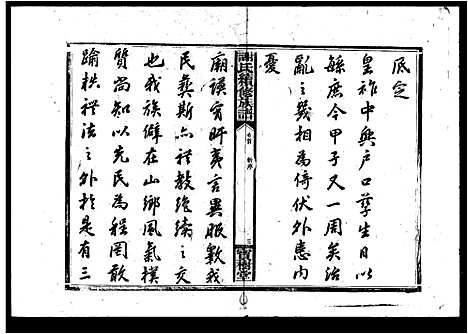 底定
皇祚中興戶口孳生日以
繇庶今甲子又一周矣治
亂之幾相為倚伏外患內
憂
謝氏續修族譜
卷首
新序
三
寶樹堂
廟謨宵旰夷言異服數我
民彝斯亦禮教絕續之交
也我族僻在山鄉風氣樸
質尚知以先民為程罔敢
踰越禮法之外於是有三